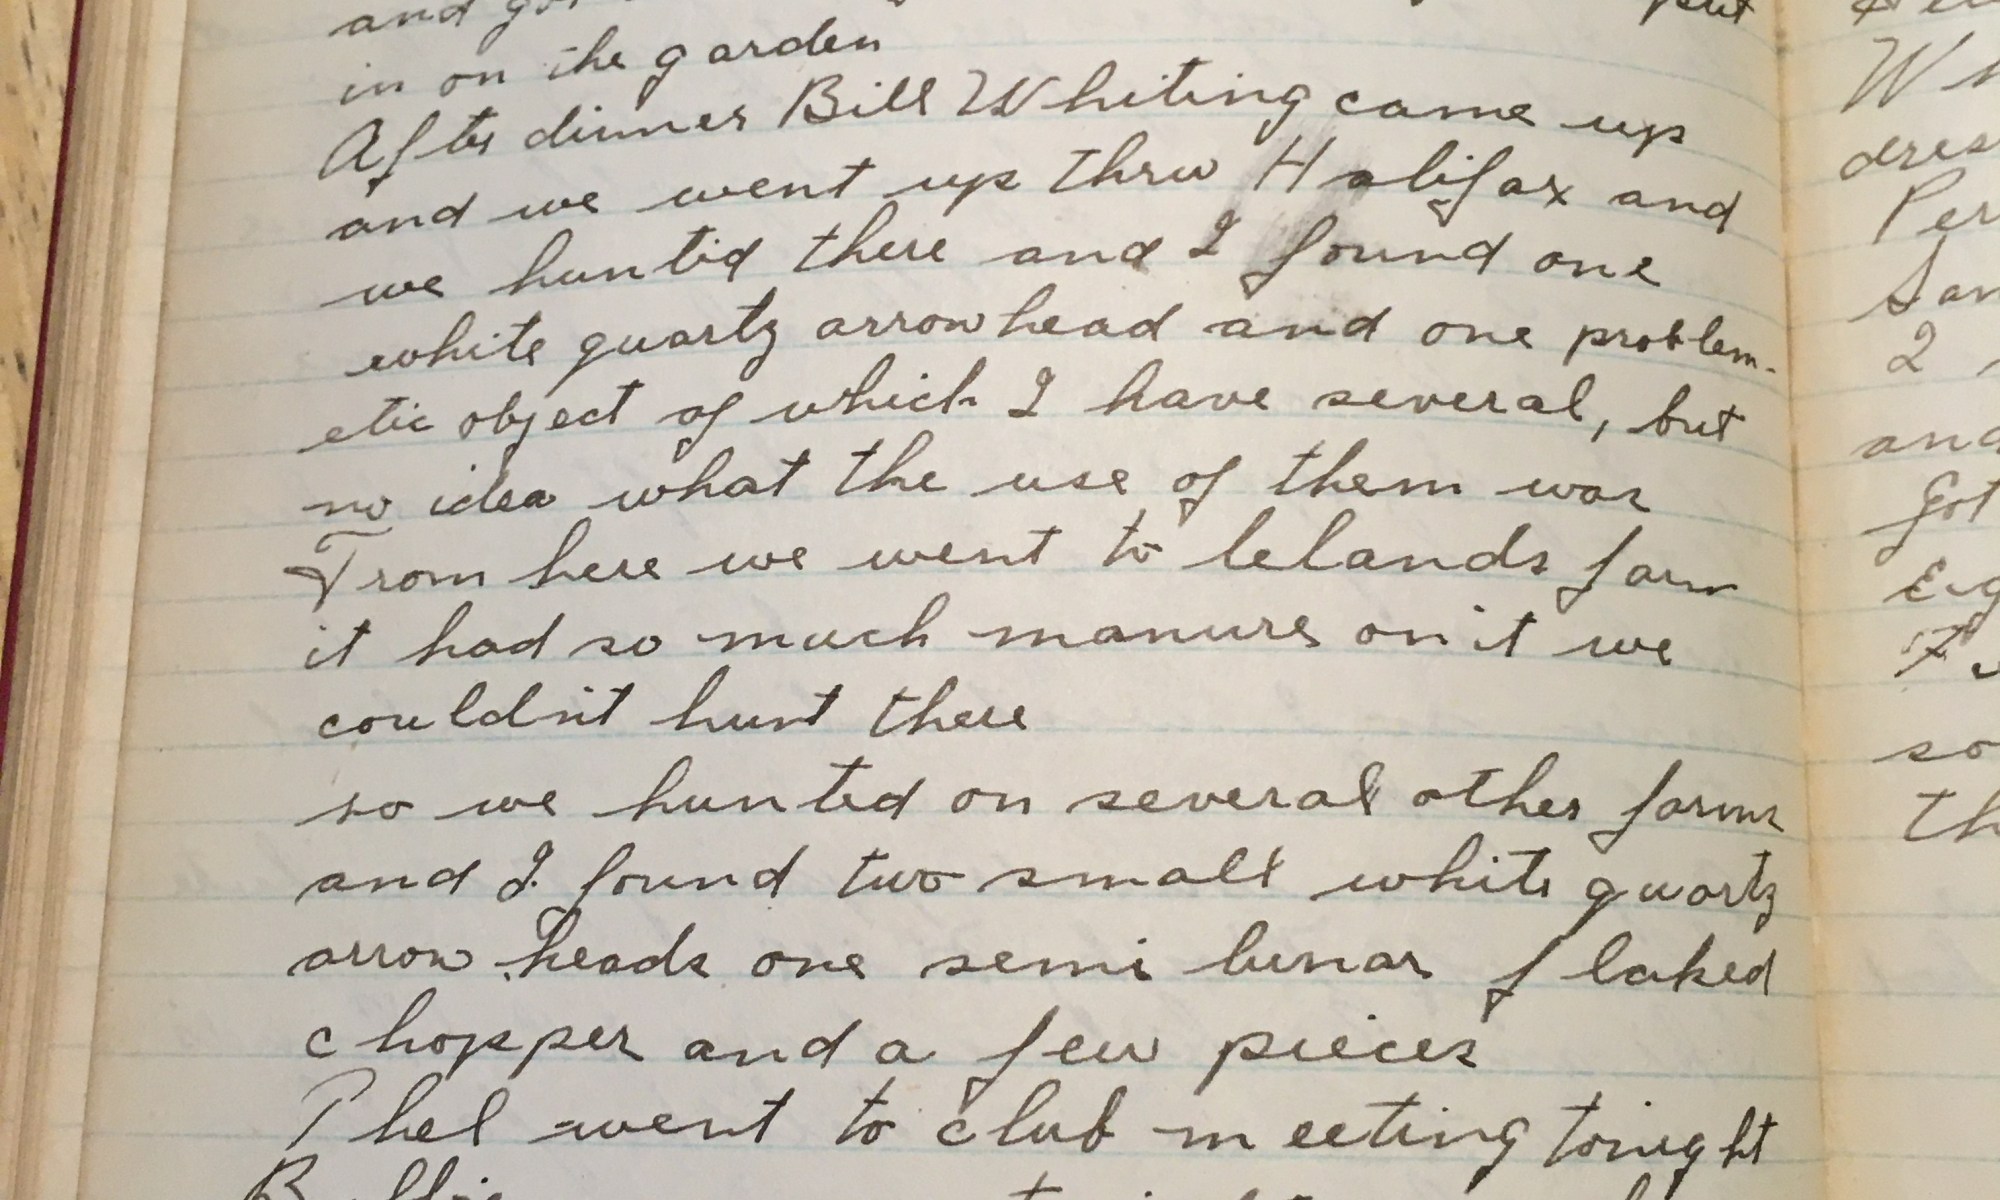 and put
in on the garden
After dinner Bill Whiting came up
and we went up thru Halifax and
we hunted there and I found one
white quartz arrowhead and one problem-
etic object of which I have several, but
no idea what the use of them was
From here we went to Lelands farm
it had so much manure on it we
couldn't hunt there
so we hunted on several other farms
and I found two small white quartz
arrow heads one semi lunar flaked
chopper and a few pieces
Phel went to club meeting tonight
W
dres
Per
San
2
and
Got
Eig
so
th